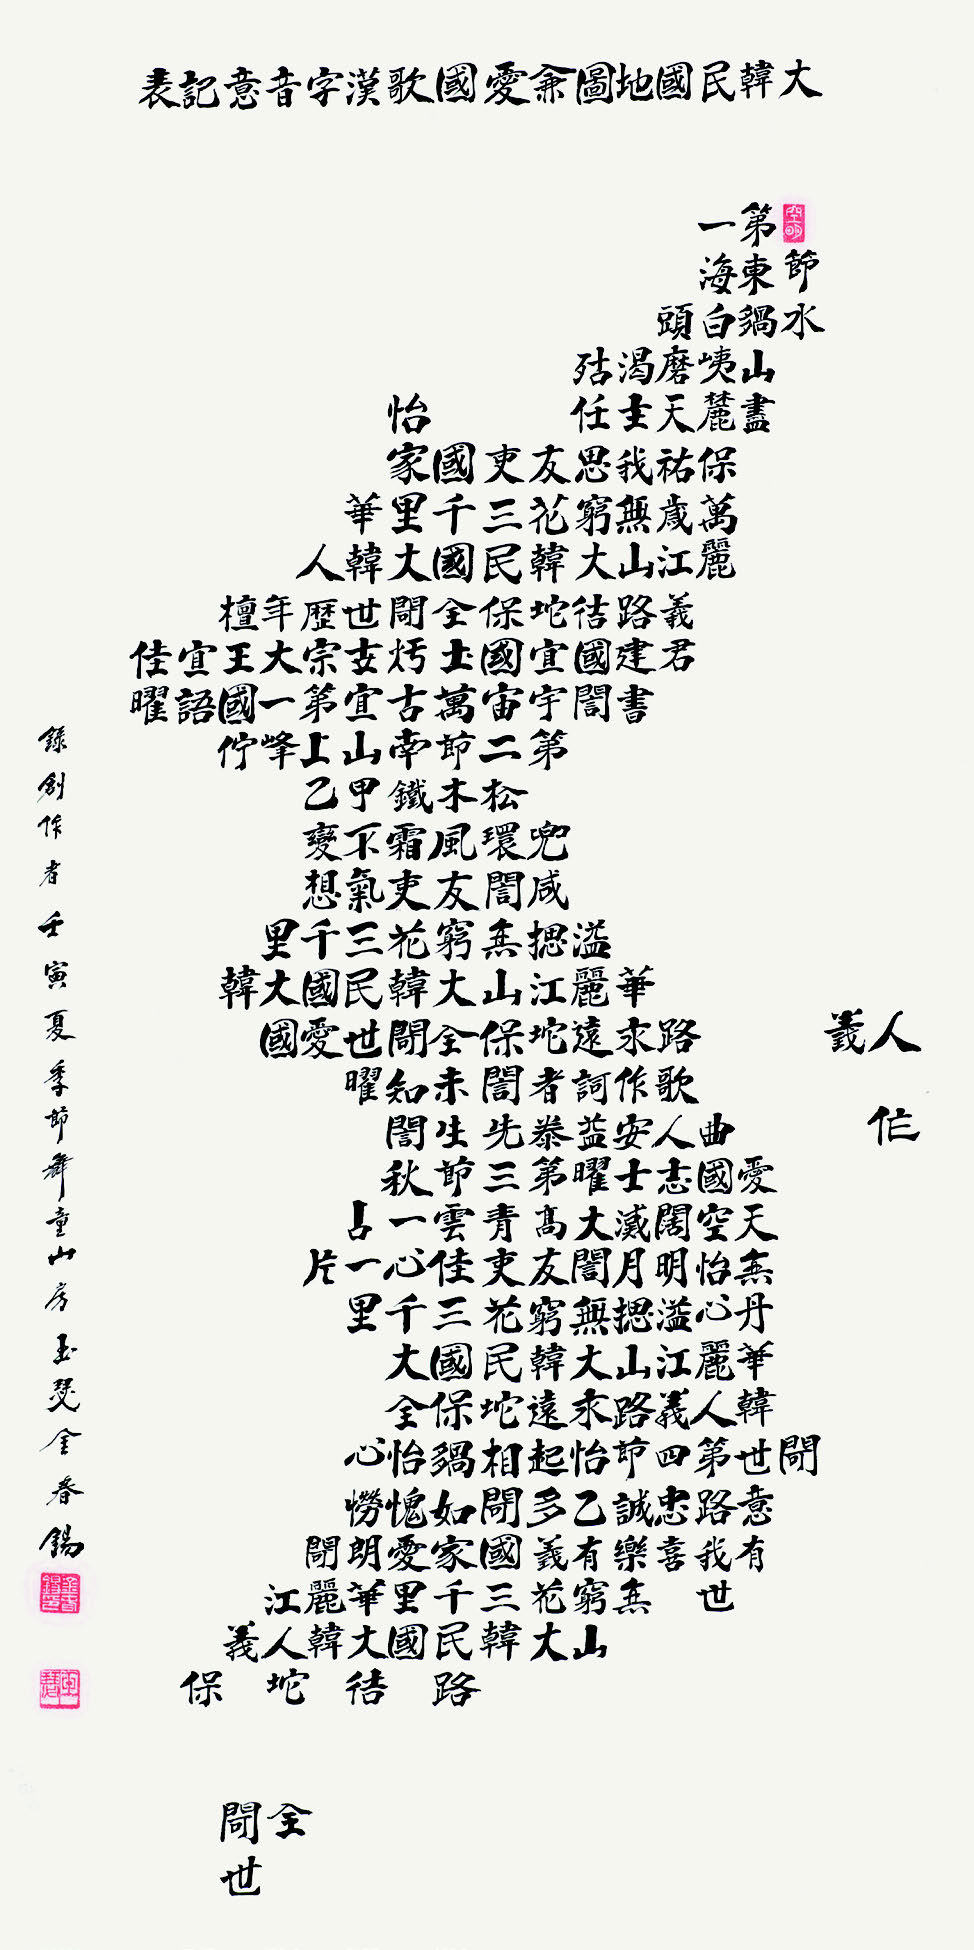 大韓民國地圖兼愛國歌漢字音意記表
第一
節東海
水鍋白頭
山峓磨渴
盡麓天主任 怡
保祐我思友吏國家
萬歲無窮花三千里華
麗江山大韓民國大韓人
義路坨保全閜世歷年檀
君建國宜國土宗大王宜佳
書誾宇宙萬古宜第一國語曜
第二節南山上峰佇
松木鐵甲乙
兜環風霜不變
咸誾友吏氣想
溢摁無窮花三千里
華麗江山大韓民國大韓
人義 路永遠坨保全閜世愛國
歌作詞者誾未知曜
曲人安益泰先生誾
愛國志士曜第三節秋
天空闊滅大高青雲一占
無怡明月誾友吏佳心一片
丹心溢摁無窮花三千里
華麗江山大韓民國大
韓人義路永遠坨保全
閜世第四節怡起相鍋怡心
意路忠誠乙多閜如愧憦
有我喜樂有義國家愛朗閜
世無窮花三千里華麗江
山大韓民國大韓人義
路坨保
全閜
世
錄創作者壬寅夏季節舞童山房玉瑟金春錫